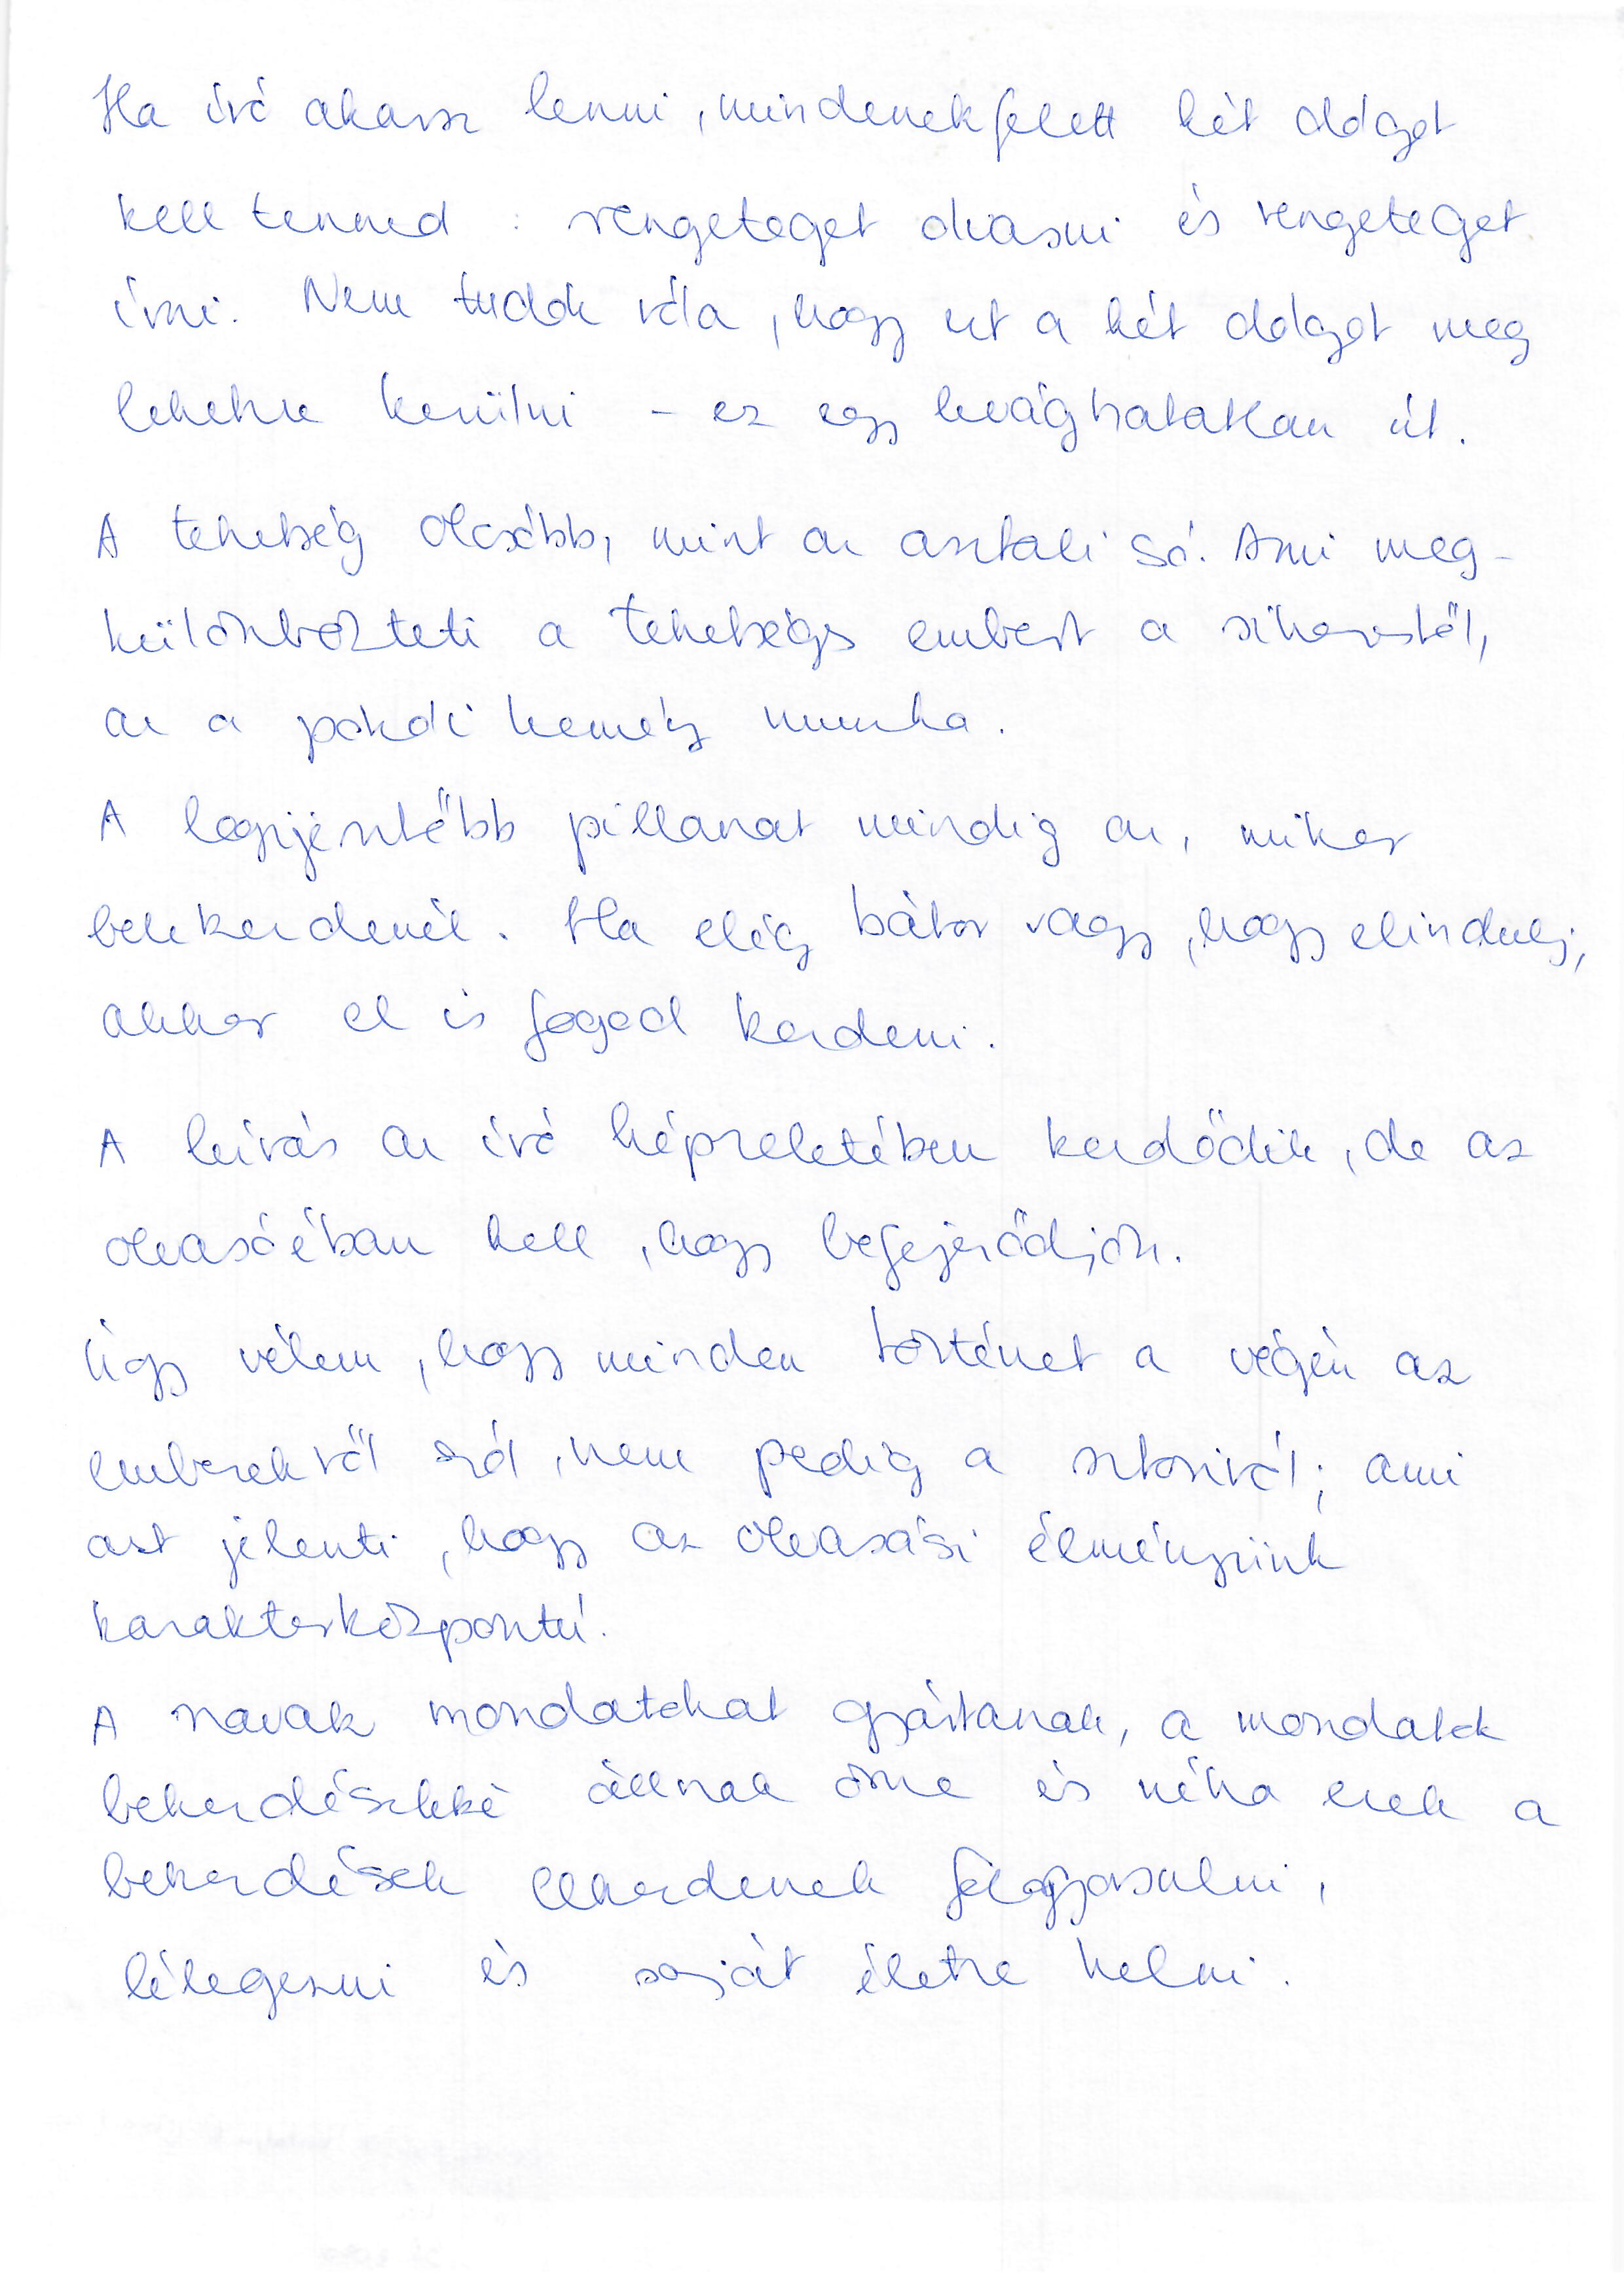 Ha író akarsz lenni, mindenekfelett két dolgot
kell tenned: rengeteget olvasni és rengeteget
írni. Nem tudok róla, hogy ezt a két dolgot meg
lehetne kerülni - ez egy levághatatlan út.
A tehetség olcsóbb, mint az asztali só. Ami meg-
különbözteti a tehetséges embert a sikerestől,
az a pokoli kemény munka.
A legijesztőbb pillanat mindig az, mikor
belekezdenél. Ha elég bátor vagy, hogy elindulj,
akkor el is fogod kezdeni.
A leírás az író képzeletében kezdődik, de az
olvasóéban kell, hogy befejeződjön.
Úgy vélem, hogy minden történet a végén az
emberekről szól, nem pedig a sztoriról; ami
azt jelenti, hogy az olvasási élményünk
karakterközpontú.
A szavak mondatokat gyártanak, a mondatok
bekezdésekké állnak össze és néha ezek a
bekezdések elkezdenek felgyorsulni,
lélegezni és saját életre kelni.